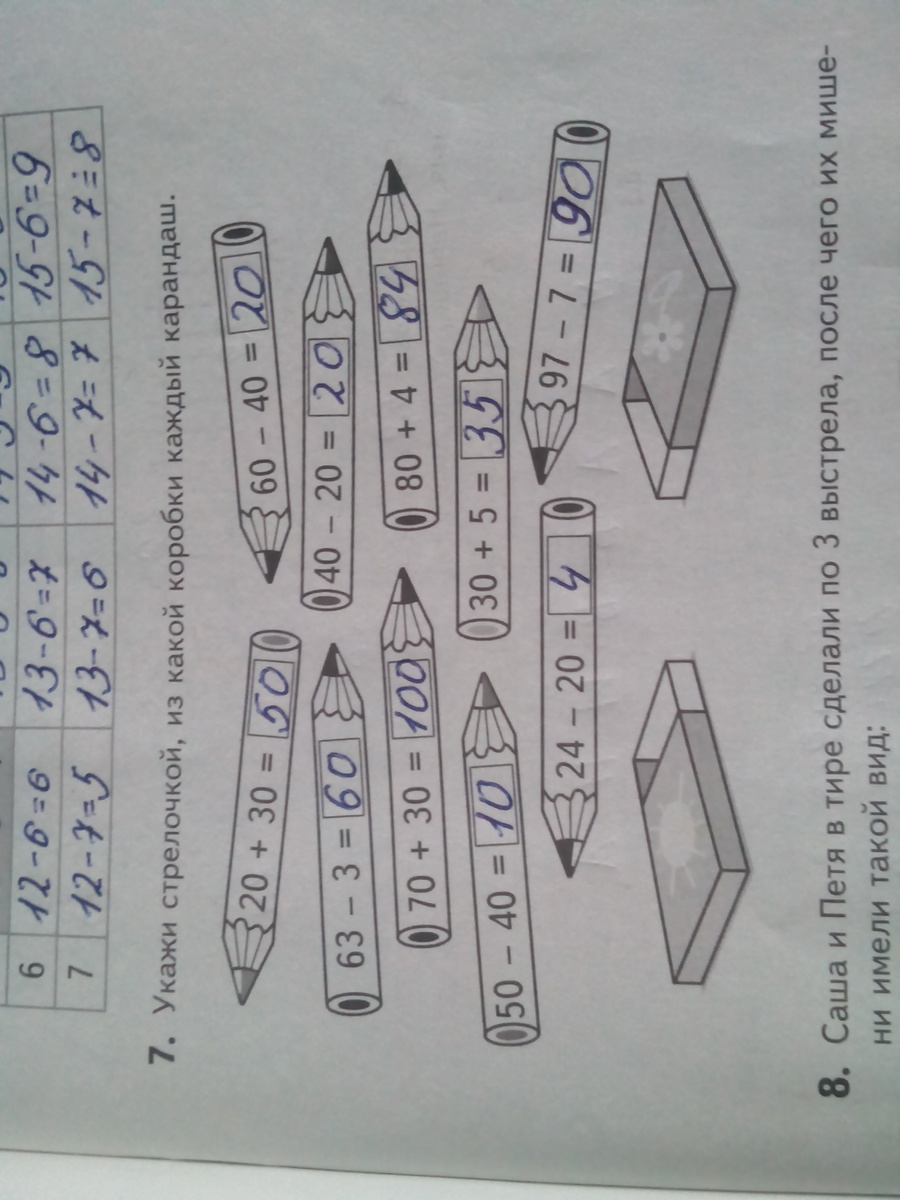 6 12-6=6 13-6=7 14-6=8 15-6=9
7 12-7=5 13-7=6 14-7=7 15-7=8
7. Укажи стрелочкой, из какой коробки каждый карандаш.
20 + 30 = 50
60 – 40 = 20
63 – 3 = 60
40 – 20 = 20
70 + 30 = 100
80 + 4 = 84
50 – 40 = 10
30 + 5 = 35
24 – 20 = 4
97 – 7 = 90
8. Саша и Петя в тире сделали по 3 выстрела, после чего их мише-
ни имели такой вид: